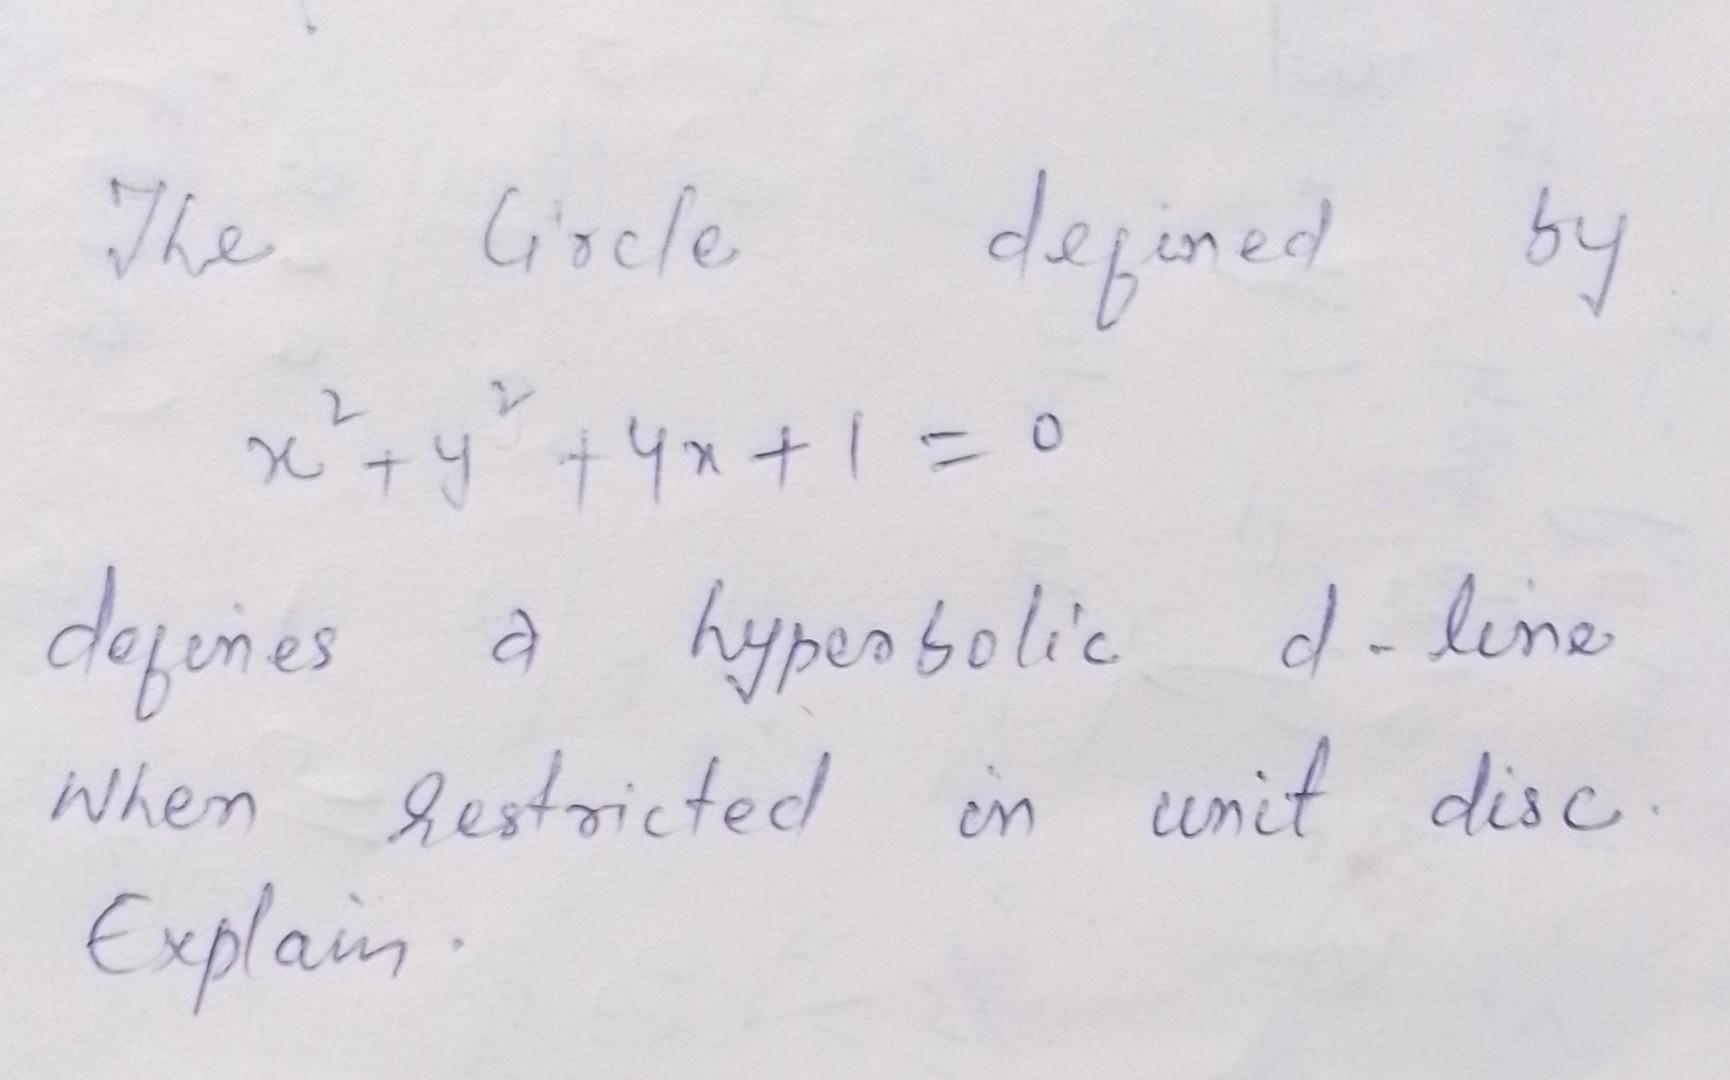 The Circle defined by
x² + y² + 4x + 1 = 0
defines a hyperbolic d-line
when restricted in unit disc.
Explain.